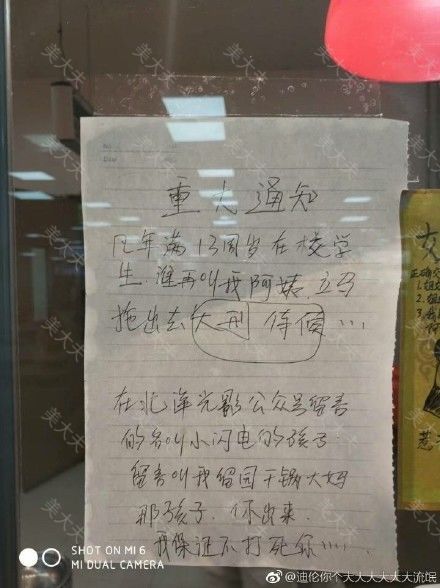 重大通知
凡年满13周岁在校学
生.谁再叫我阿姨立马
拖出去大刑 侍候…
在北洋光影公众号留言
的名叫小闪电的孩子.
留言叫我留园干锅大妈
那孩子.你出来
我保证不打死你……
女
正确
1.
2.
3.
惹
美大夫
SHOT ON MI 6
MI DUAL CAMERA
@迪伦你个大大大大大大流氓